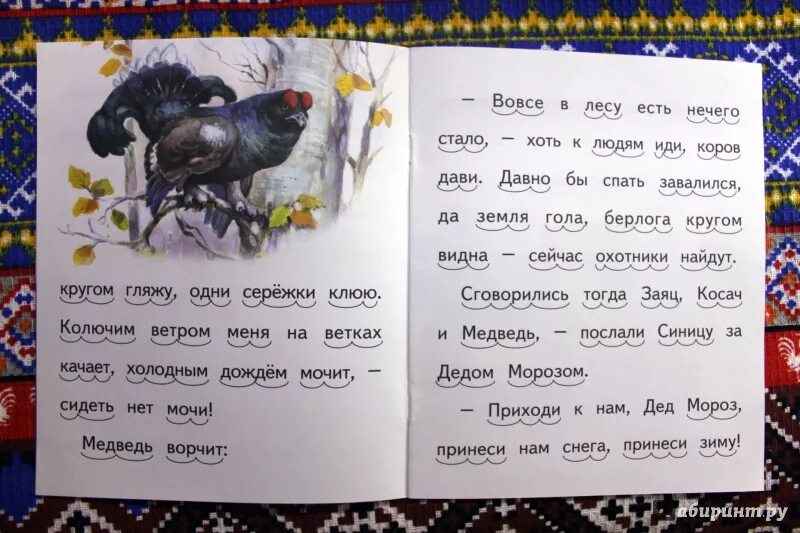 кругом гляжу, одни серёжки клюю.
Колючим ветром меня на ветках
качает, холодным дождём мочит, –
сидеть нет мочи!
Медведь ворчит:
– Вовсе в лесу есть нечего
стало, – хоть к людям иди, коров
дави. Давно бы спать завалился,
да земля гола, берлога кругом
видна – сейчас охотники найдут.
Сговорились тогда Заяц, Косач
и Медведь, – послали Синицу за
Дедом Морозом.
– Приходи к нам, Дед Мороз,
принеси нам снега, принеси зиму!
абиринт.ру